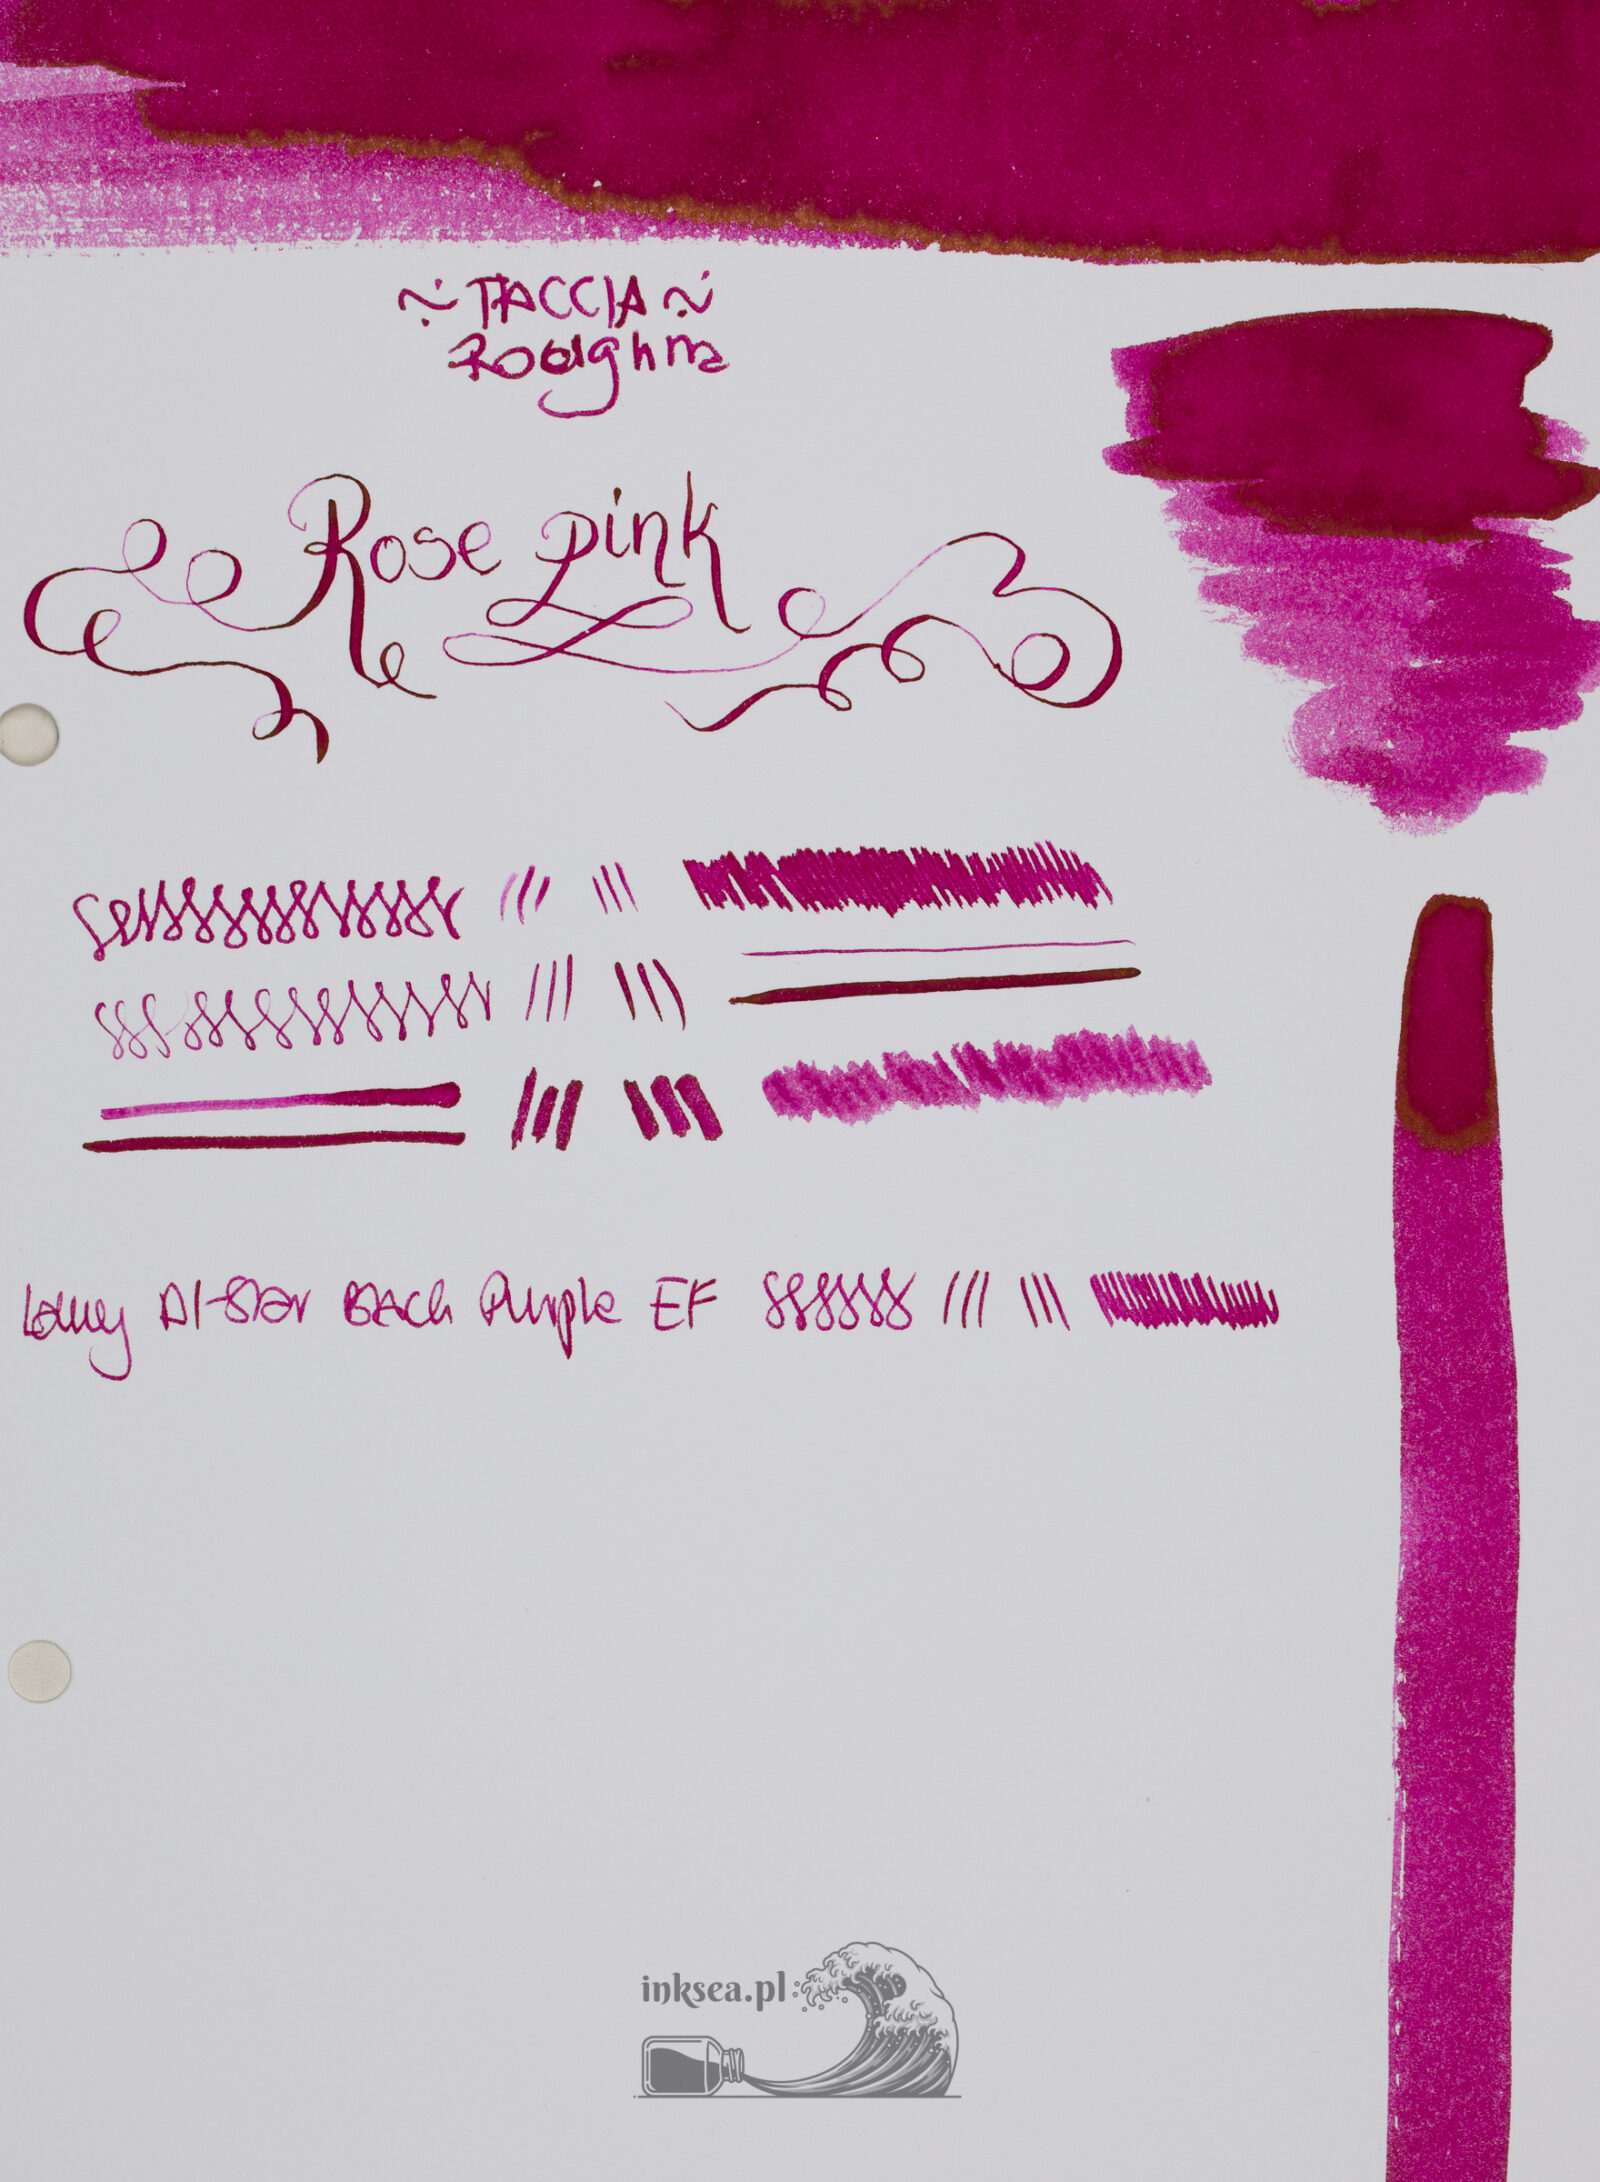 ~ TACCIA ~
Rose pink
Lamy Al-Star Black Purple EF
inksea.pl